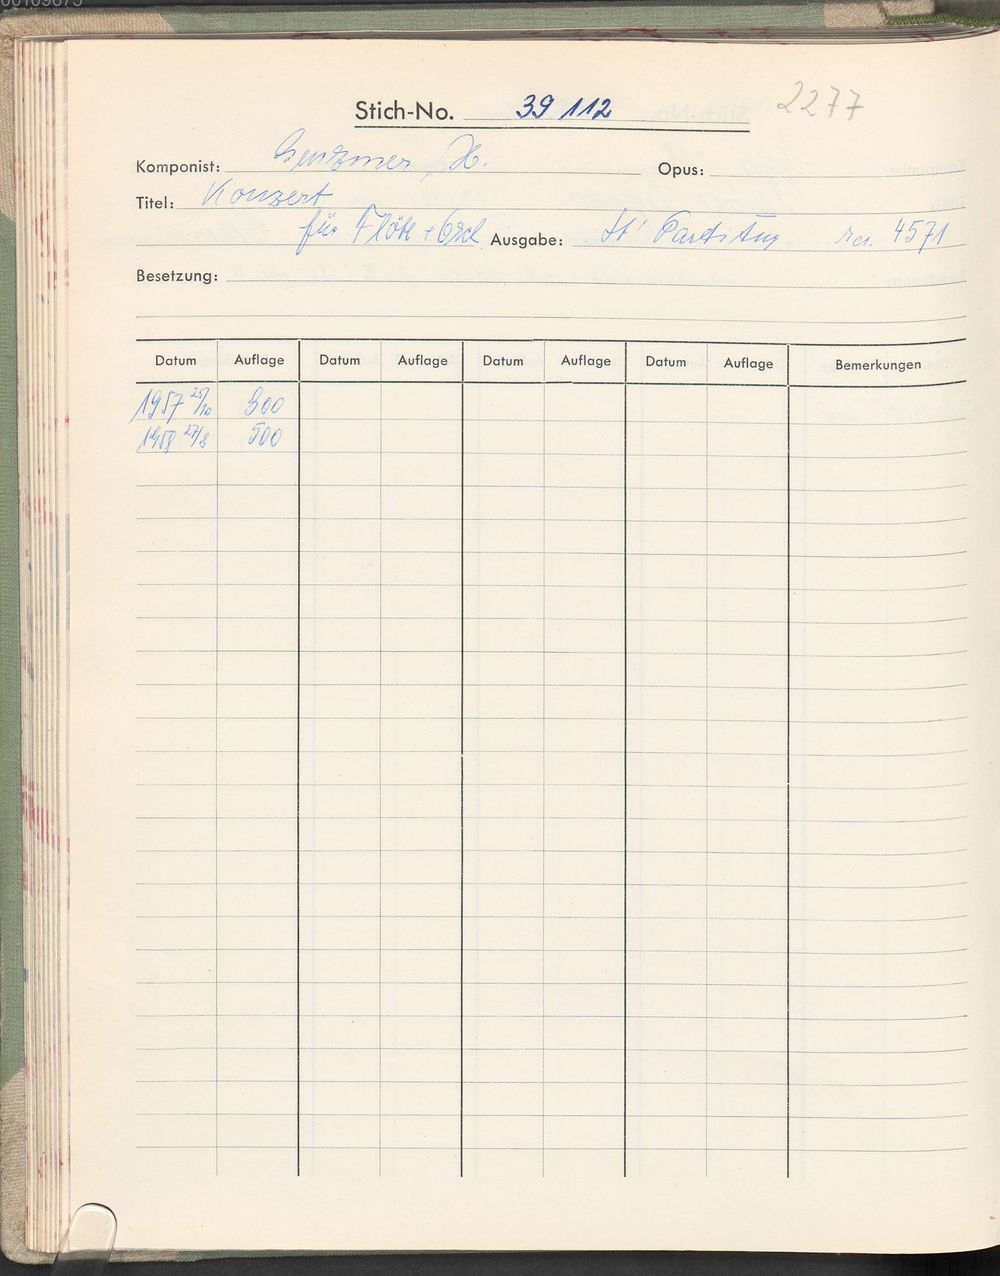 Stich-No. 39 112 2277
Komponist: Genzmer, H. Opus:
Titel: Konzert
für Flöte + Orch Ausgabe: St' Partitur 4571
Besetzung:
Datum Auflage Datum Auflage Datum Auflage Datum Auflage Bemerkungen
1957 25/10 300
1958 27/8 500